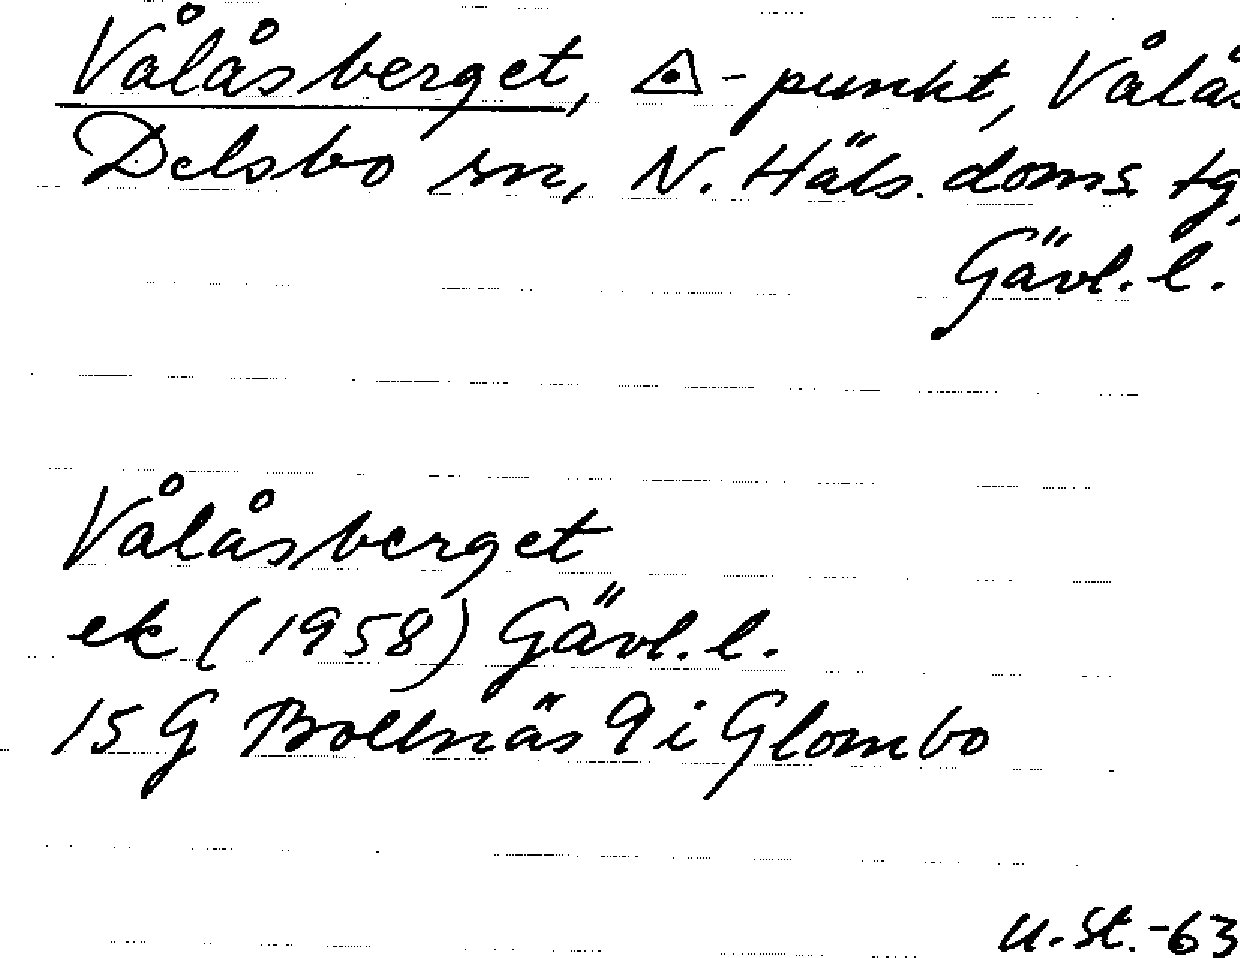 Vålåsberget, △-punkt, Vålås
Delsbo sn, N. Häls. doms. tg,
Gävl. l.
Vålåsberget
ek (1958) Gävl. l.
15 G Bollnäs 9 i Glombo
U. St. -63